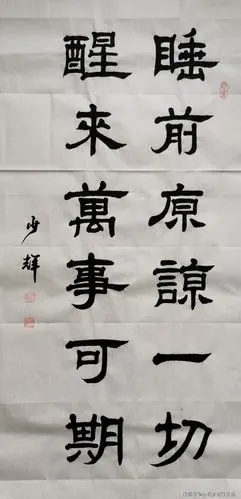 睡前原諒一切
醒來萬事可期
少輝